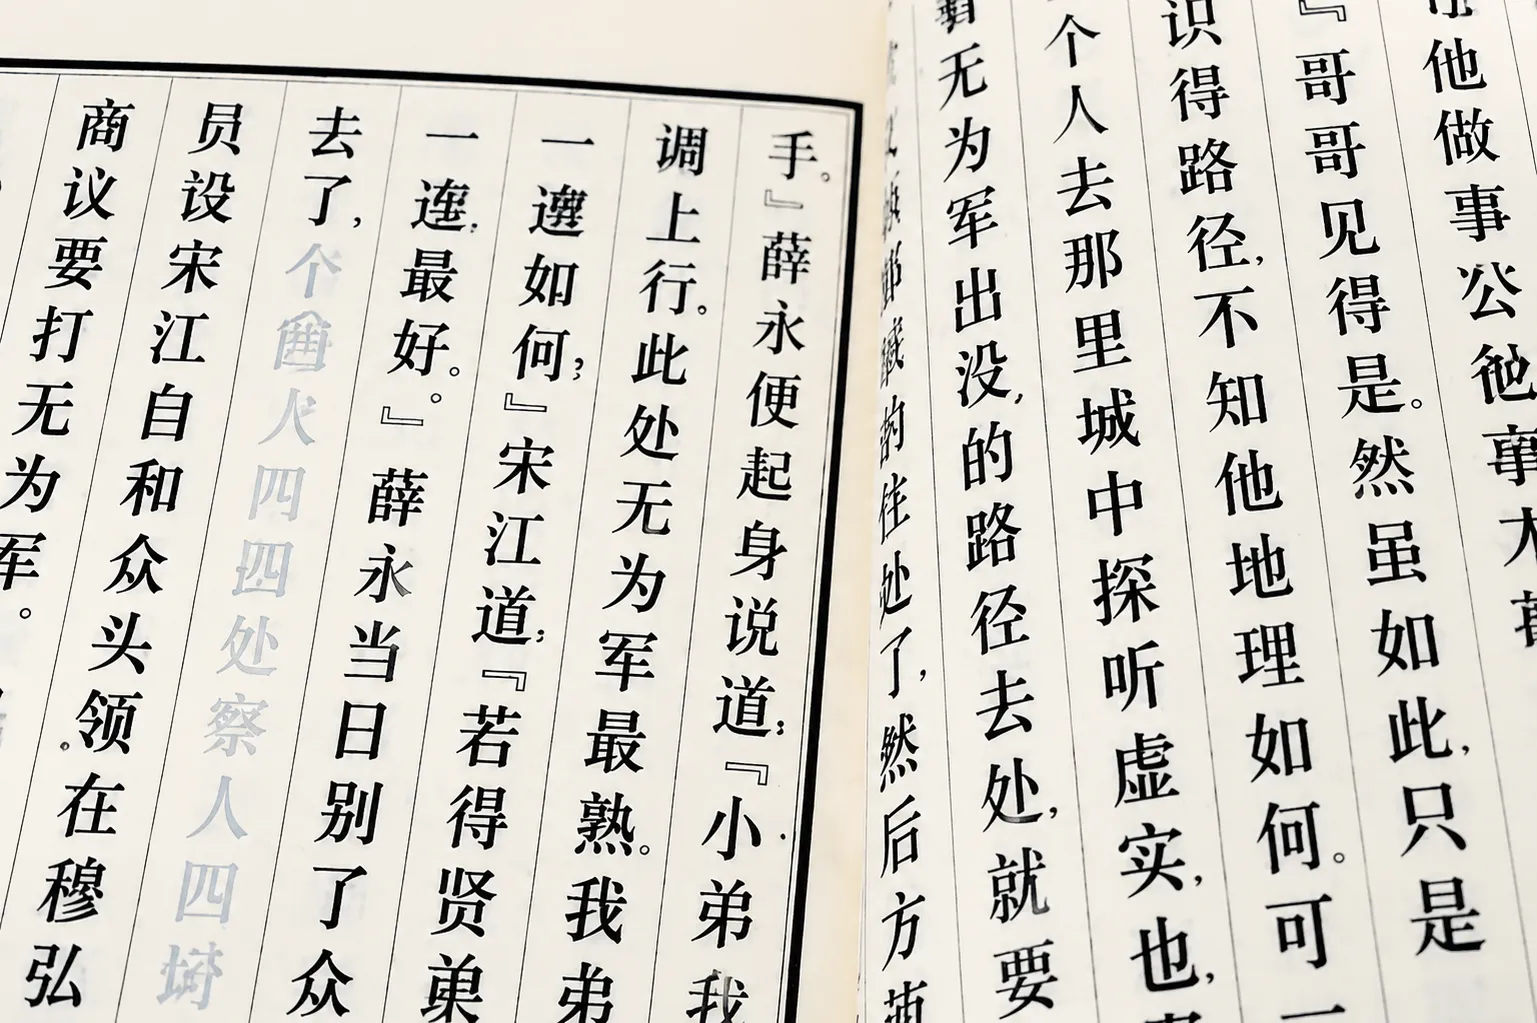 他做事公
』哥哥见得是。然虽如此,只是
识得路径,不知他地理如何。可
个人去那里城中探听虚实,也,
无为军出没,的路径去处,就要
的住处了,然后方
手。』薛永便起身说道;『小弟我
调上行。此处无为军最熟。我弟
一遭如何;』宋江道;『若得贤
一 最好。。』薛永当日别了众
去了,个 人四四处察人四
员设宋江自和众头领。在穆弘
商议要打无为军。